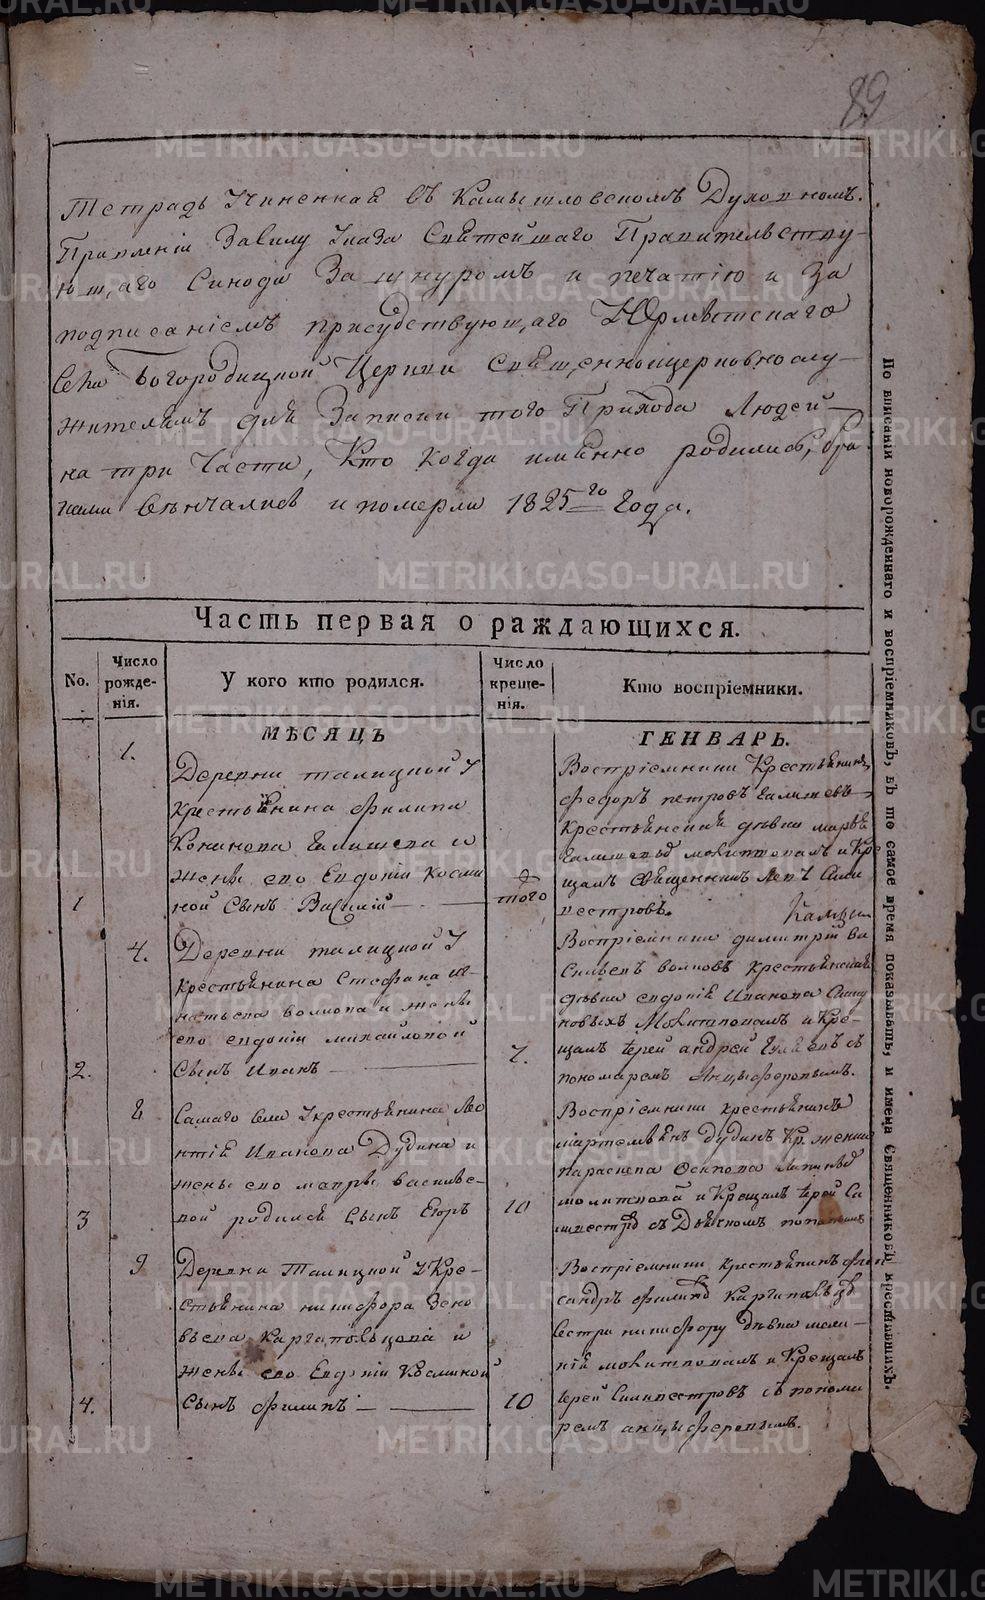 89
Тетрадь Учиненная въ Камышловскомъ Духовномъ
Правленіи Засилу Указа Святейшаго Правительству-
ющаго Синода За шнуромъ и печатію и За
подписаніемъ присудствующаго Юрмытскаго
Села Богородицкой Церкви Священноицерковнослу-
жителямъ для Записки того Прихода Людей
на три Части, Кто когда имянно родились, бра-
ками венчались и померли 1825го Года.
Часть первая о раждающихся.
No.
Число рожде-нія.
У кого кто родился.
Число креще-нія.
Кто воспріемники.
МѢСЯЦЪ ГЕНВАРЬ.
1.
Деревни талицкой У
крестьянина Филипа
Конанова Галишева и
жены его Евдокіи Косми
ной Сынъ Василій
1
того
Воспріемники Крестьянинъ
Федоръ петровъ Галишевъ
Крестьянская девка марья
Галишевыхъ молитвовалъ и Кре
щалъ священникъ Левъ Сили
вестровъ.
4.
Деревни талицкой У
крестьянина Стефана Иг-
натьева волкова и жены
его евдокіи михайловой
Сынъ Иванъ
2.
7.
Воспріемники димитрій ва
сильевъ волковъ крестьянская
девка евдокія Иванова
Молитвовалъ и Кре-
щалъ Іерей андрей съ
пономаремъ Анцыферовымъ.
8
Самаго села У крестьянина Лео
нтія Иванова Дудина и
жены его мавры василье-
вой родился Сынъ Егоръ
3
10
Воспріемники крестьянинъ
дудинъ Кр. женка
параскева Осипова
молитвовалъ и Крещалъ Іерей Си
ливестровъ съ Дьячкомъ поповымъ
9
Деревни Талицкой У Кре-
стьянина никифора Зено
вьева Каргапольцова и
жены его Евдокіи Косминой
Сынъ Филипъ
4.
10
Воспріемники крестьянинъ Алек
сандръ Филиповъ Каргапольцовъ
Сестра никифору девка мела-
нія молитвовалъ и Крещалъ
Іерей Силивестровъ съ понома
ремъ анцыферовымъ.
По вписаніи новорожденнаго и воспріемниковъ, въ то самое время показывать, и имена Священниковъ крестившихъ.
METRIKI.GASO-URAL.RU